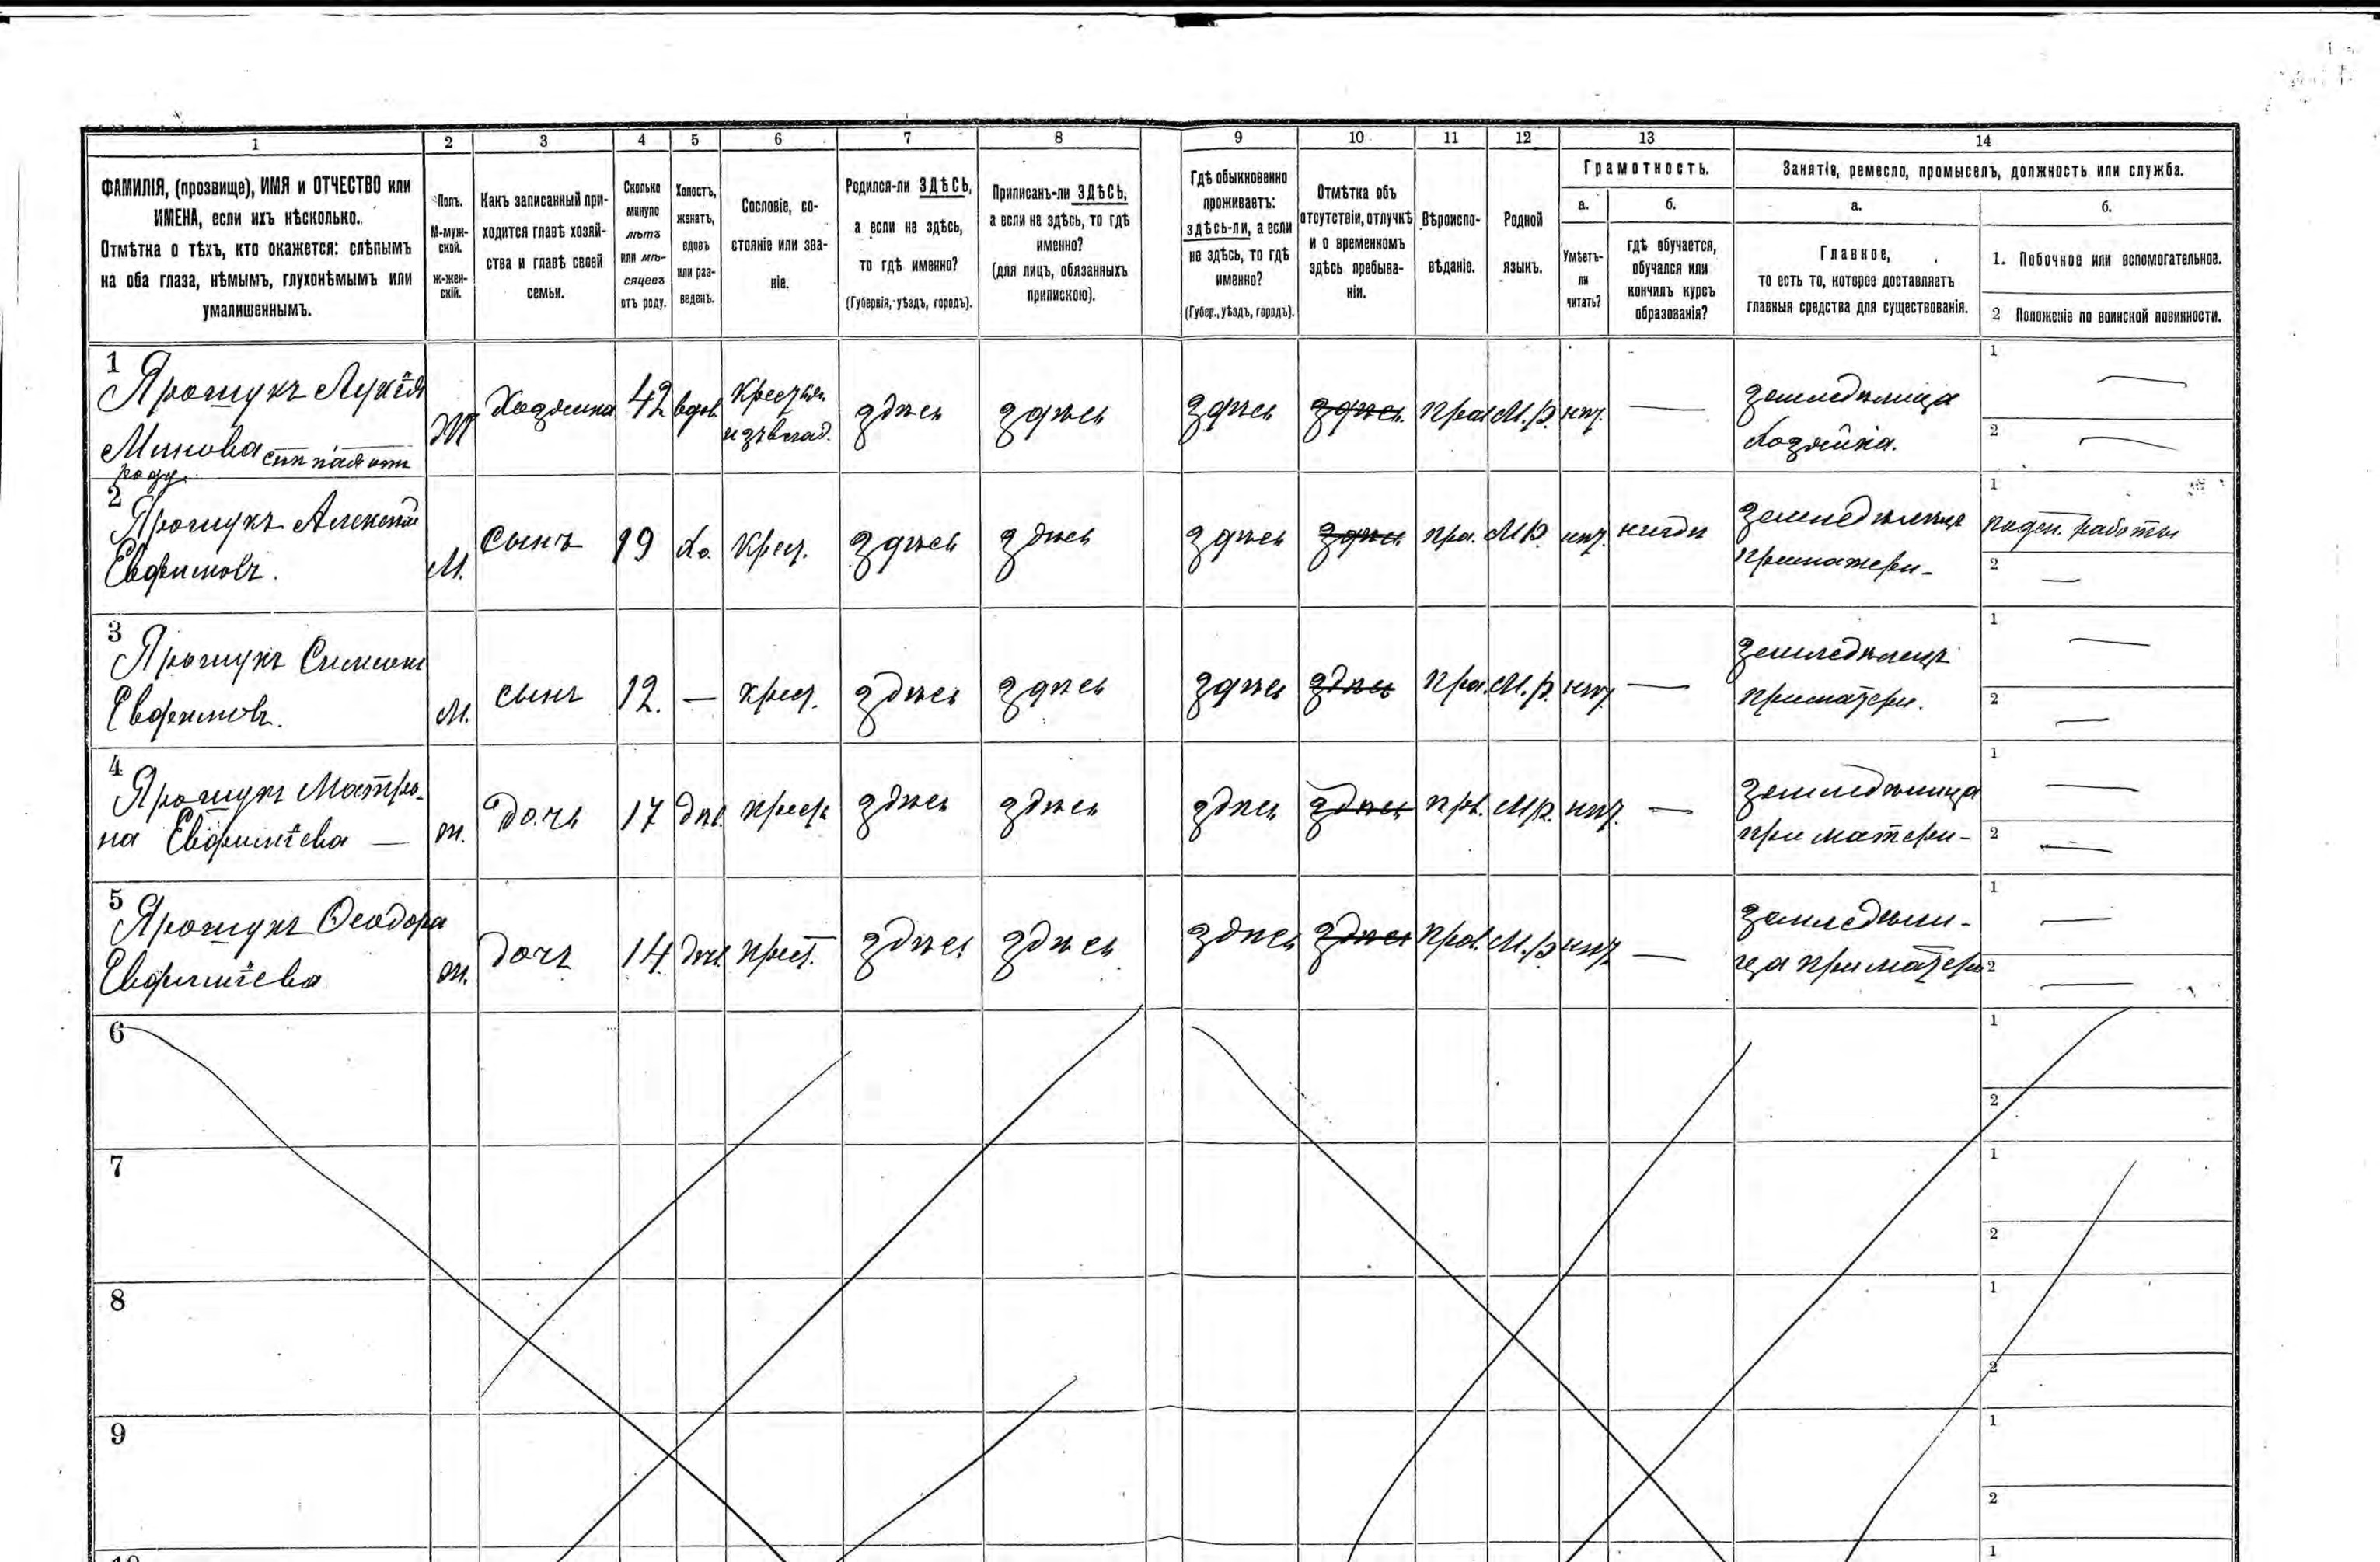 1 2 3 4 5 6 7 8 9 10 11 12 13 14
ФАМИЛІЯ, (прозвище), ИМЯ и ОТЧЕСТВО или
ИМЕНА, если ихъ нѣсколько.
Отмѣтка о тѣхъ, кто окажется: слѣпымъ
на оба глаза, нѣмымъ, глухонѣмымъ или
умалишеннымъ.
Полъ.
М-муж-
ской.
ж-жен-
скій.
Какъ записанный при-
ходится главѣ хозяй-
ства и главѣ своей
семьи.
Сколько
минуло
лѣтъ
или мѣ-
сяцевъ
отъ роду.
Холостъ,
женатъ,
вдовъ
или раз-
веденъ.
Сословіе, со-
стояніе или зва-
ніе.
Родился-ли ЗДѢСЬ,
а если не здѣсь,
то гдѣ именно?
(Губернія, уѣздъ, городъ).
Приписанъ-ли ЗДѢСЬ,
а если не здѣсь, то гдѣ
именно?
(для лицъ, обязанныхъ
припискою).
Гдѣ обыкновенно
проживаетъ:
здѣсь-ли, а если
не здѣсь, то гдѣ
именно?
(Губер., уѣздъ, городъ).
Отмѣтка объ
отсутствіи, отлучкѣ
и о временномъ
здѣсь пребыва-
ніи.
Вѣроиспо-
вѣданіе.
Родной
языкъ.
Грамотность.
а. б.
Умѣетъ-
ли
читать?
гдѣ обучается,
обучался или
кончилъ курсъ
образованія?
Занятіе, ремесло, промыселъ, должность или служба.
а. б.
Главное,
то есть то, которое доставляетъ
главныя средства для существованія.
1. Побочное или вспомогательное.
2 Положеніе по воинской повинности.
1
Ярощукъ Лукія
Минова
роду.
Ж Хозяйка 42 вдов. Крестьян.
из влад.
здѣсь здѣсь здѣсь здѣсь. прав М.р. нѣт. —
земледѣлица
Хозяйка.
1 —
2 —
2
Ярощукъ Алексѣй
Евфимовъ.
М. Сынъ 19 Хо. Крест. здѣсь здѣсь здѣсь здѣсь пра. М.р. нѣт. нигдѣ
земледѣлецъ
при матери-
1 поден. работы
2 —
3
Ярощукъ Симеонъ
Евфимовъ.
М. сынъ 12. — крест. здѣсь здѣсь здѣсь здѣсь пра. М.р. нѣт —
земледѣлецъ
при матери.
1 —
2 —
4
Ярощукъ Матро-
на Евфиміева —
ж. дочь 17 дѣв. крест. здѣсь здѣсь здѣсь здѣсь прв. М.р. нѣт. —
земледѣлица
при матери-
1 —
2 —
5
Ярощукъ Ѳеодора
Евфиміева
ж. дочь 14. дѣв. крест. здѣсь здѣсь здѣсь здѣсь прав. М.р. нѣт —
земледѣли-
ца при матери
1 —
2 —
6 1
2
7 1
2
8 1
2
9 1
2
10 1